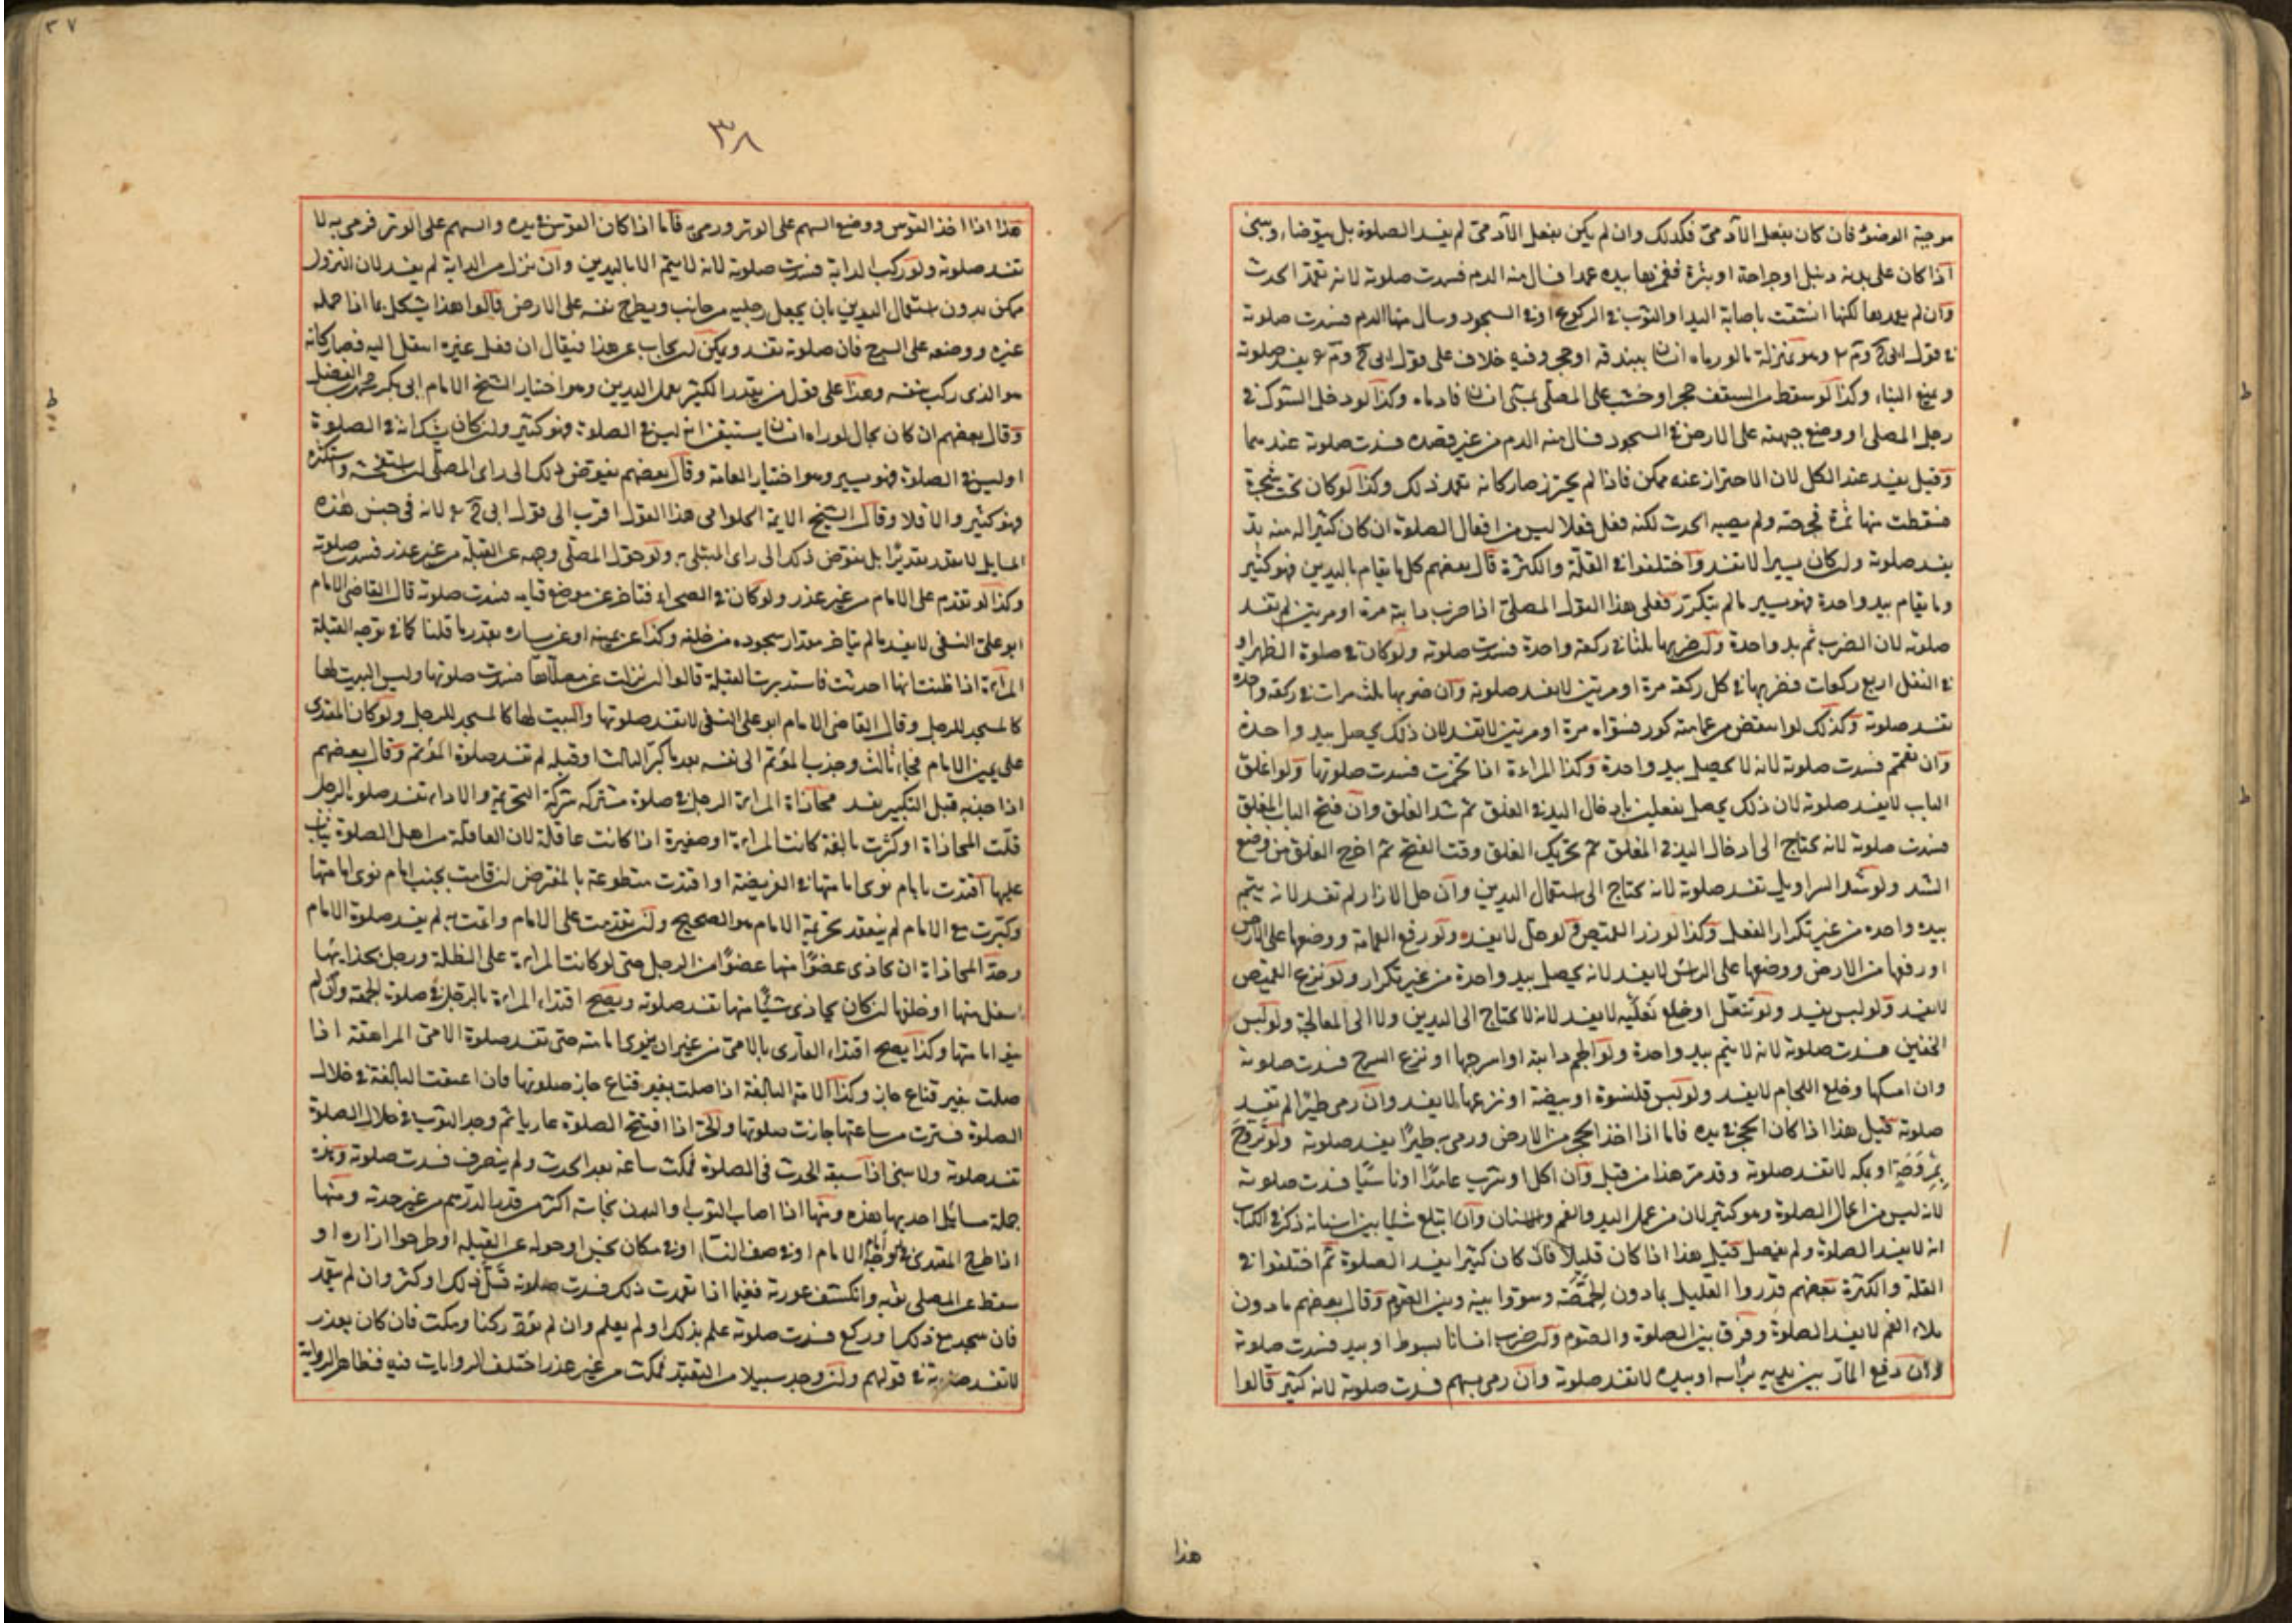 موجبة الوضوء فان كان بفعل الآدمى فكذلك وان لم يكن بفعل الآدمى لم يفسد الصلوة بل يتوضاء ويبنى
اذا كان على بدنه دمل او جراحة او بثرة فغمزها بيده عمدا فسال منه الدم فسدت صلوته لانه تعمد الحدث
وان لم يعمدها لكنها انشقت باصابة اليد او الثوب فى الركوع او فى السجود وسال منها الدم فسدت صلوته
فى قول ابى ح وم وهو بمنزلة ما لو رماه انسان ببندقة او حجر وفيه خلاف على قول ابى ح وم يفسد صلوته
ويمنع البناء وكذا لو سقط من السقف حجر او خشب على المصلى بمشى انسان فادماه وكذا لو دخل الشوك فى
رجل المصلى او وضع جبهته على الارض فى السجود فسال منه الدم من غير قصده فسدت صلوته عندهما
وقيل يفسد عند الكل لان الاحتراز عنه ممكن فاذا لم يحترز صار كانه تعمد ذلك وكذا لو كان تحت شجرة
فسقطت منها ثمرة فجرحته ولم يصبه الحدث لكنه فعل فعلا ليس من افعال الصلوة ان كان كثيرا له منه بد
يفسد صلوته وان كان يسيرا لا تفسد واختلفوا فى القلة والكثرة قال بعضهم كل ما يقام باليدين فهو كثير
وما يقام بيد واحدة فهو يسير ما لم يتكرر فعلى هذا القول المصلى اذا ضرب دابته مرة او مرتين لم تفسد
صلوته لان الضرب ثم بيد واحدة وان ضربها ثلثا فى ركعة واحدة فسدت صلوته ولو كان فى صلوة الظهر او
فى النفل اربع ركعات فضربها فى كل ركعة مرة او مرتين لا يفسد صلوته وان ضربها ثلث مرات فى ركعة واحدة
تفسد صلوته وكذلك لو انتقض من عمامته كور فسواه مرة او مرتين لا تفسد لان ذلك يحصل بيد واحدة
وان تعمم فسدت صلوته لانه لا يحصل بيد واحدة وكذا المراءة اذا تخمرت فسدت صلوتها ولو اغلق
الباب لا يفسد صلوته لان ذلك يحصل بفعلين بادخال اليد فى الغلق ثم شد الغلق وان فتح الباب المغلق
فسدت صلوته لانه يحتاج الى ادخال اليد فى المغلق ثم تحريك الغلق وقت الفتح ثم اخرج الغلق من وضع
الشد ولو شد السراويل تفسد صلوته لانه يحتاج الى استعمال اليدين وان حل الازار لم تفسد لانه يتم
بيده واحده من غير تكرار الفعل وكذا لو زر القميص ولو حل لا يفسد ولو رفع العمامة ووضعها على الارض
او رفعها من الارض ووضعها على الراس لا يفسد لانه يحصل بيد واحدة من غير تكرار ولو نزع القميص
لا يفسد ولو لبس يفسد ولو تنعل او خلع نعليه لا يفسد لانه لا يحتاج الى اليدين ولا الى المعالجة ولو لبس
الخفين فسدت صلوته لانه لا يتم بيد واحدة ولو الجم دابته او اسرجها او نزع السرج فسدت صلوته
وان امسكها وخلع اللجام لا يفسد ولو لبس قلنسوة او بيضة او نزعها لا يفسد وان رمى طيرا لم تفسد
صلوته قيل هذا اذا كان الحجر فى يده فاما اذا اخذ الحجر من الارض ورمى به طيرا يفسد صلوته ولو تروح
بمروحة او بكمه لا تفسد صلوته وقد مر هذا من قبل وان اكل او شرب عامدا او ناسيا فسدت صلوته
لانه ليس من اعمال الصلوة وهو كثير لان من عمل اليد والفم والاسنان وان ابتلع شيئا بين اسنانه ذكر فى الكتاب
انه لا يفسد الصلوة ولم يفصل قيل هذا اذا كان قليلا فان كان كثيرا يفسد الصلوة ثم اختلفوا فى
القلة والكثرة بعضهم قدروا القليل بما دون الحمصة وسووا بينه وبين الصوم وقال بعضهم ما دون
ملاء الفم لا يفسد الصلوة وفرق بين الصلوة والصوم ولو ضرب انسانا بسوط او بيد فسدت صلوته
وان دفع المار بين يديه براسه او بيده لا تفسد صلوته وان رمى بسهم فسدت صلوته لانه كثير قالوا
هذا
٣٧
٣٨
هذا اذا اخذ القوس ووضع السهم على الوتر ورمى به فاما اذا كان القوس فى يده والسهم على الوتر فرمى به لا
تفسد صلوته ولو ركب الدابة فسدت صلوته لانه لا يتم الا باليدين وان نزل من الدابة لم يفسد لان النزول
ممكن بدون استعمال اليدين بان يجعل رجليه من جانب ويطرح نفسه على الارض قالوا هذا يشكل بما اذا حمله
غيره ووضعه على السرج فان صلوته تفسد ويمكن ان يجاب عن هذا فيقال ان فعل غيره انتقل اليه فصار كانه
هو الذى ركب بنفسه وهذا على قول من يقدر الكثير بعمل اليدين وهو اختيار الشيخ الامام ابى بكر محمد بن الفضل
وقال بعضهم ان كان بحال لو راه انسان يستيقن انه ليس فى الصلوة فهو كثير وان كان يشك انه فى الصلوة
او ليس فى الصلوة فهو يسير وهو اختيار العامة وقال بعضهم يفوض ذلك الى راى المصلى ان استفحشه واستكثره
فهو كثير والا فلا وقال الشيخ الايمة الحلوامى هذا القول اقرب الى قول ابى ح لانه فى جنس هذه
المسايل لا يقدر تقديرا بل يفوض ذلك الى راى المبتلى به ولو حول المصلى وجهه عن القبلة من غير عذر فسدت صلوته
وكذا لو تقدم على الامام من غير عذر ولو كان فى الصحراء فتاخر عن موضع قيامه فسدت صلوته قال القاضى الامام
ابو على النسفى لا يفسد ما لم يتاخر مقدار سجوده من خلفه وكذا عن يمينه او عن يساره بقدر ما قلنا كما فى توجه القبلة
المراءة اذا ظنت انها احدثت فاستدبرت القبلة قالوا ان نزلت عن مصلاها فسدت صلوتها وليس البيت لها
كالمسجد للرجل وقال القاضى الامام ابو على النسفى لا تفسد صلوتها والبيت لها كالمسجد للرجل ولو كان المقتدى
على يمين الامام فجاء ثالث وجذب المؤتم الى نفسه بعد ما كبر الثالث او قبله لم تفسد صلوة المؤتم وقال بعضهم
اذا جذبه قبل التكبير يفسد محاذاة المراءة الرجل فى صلوة مشتركه شركة التحريمة والاداء تفسد صلوة الرجل
قلت المحاذاة او كثرت بالغة كانت المراءة او صغيرة اذا كانت عاقلة لان العاقلة من اهل الصلوة
عليها اقتدت بامام نوى امامتها فى الفريضة او اقتدت متطوعة بالمفترض ان قامت بجنب امام نوى امامتها
وكبرت مع الامام لم ينعقد تحريمة الامام هو الصحيح وان تقدمت على الامام واتمت به لم يفسد صلوة الامام
وحد المحاذاة ان يحاذى عضوا منها عضوا من الرجل حتى لو كانت المراءة على الظلة ورجل بحذائها
اسفل منها او خلفها ان كان يحاذى شيئا منها تفسد صلوته ويصح اقتداء المراءة بالرجل فى صلوة الجمعة وان لم
ينو امامتها وكذا يصح اقتداء القارى بالامى من غير ان ينوى امامته حتى تفسد صلوة الامى المراهقة اذا
صلت بغير قناع جاز وكذا الامة البالغة اذا صلت بغير قناع جاز صلوتها فان اعتقت البالغة فى خلال
الصلوة فسترت من ساعتها جازت صلوتها والحرة اذا افتتح الصلوة عاريا ثم وجد الثوب فى خلال الصلوة
تفسد صلوته ولا يبنى اذا سبقه الحدث فى الصلوة فمكث ساعة بعد الحدث ولم ينصرف فسدت صلوته وهذه
جملة مسائل احديها هذه ومنها اذا اصاب الثوب او البدن نجاسة اكثر من قدر الدرهم من غير حدثه ومنها
اذا طرح المقتدى امام الامام او فى صف النساء او فى مكان نجس او حوله عن القبلة او طرحوا ازاره او
سقط عن المصلى ثوبه وانكشف عورته ففيما اذا تعمدت ذلك فسدت صلوته قل ذلك او كثر وان لم يتعمد
فان سجد مع ذلك او ركع فسدت صلوته علم بذلك او لم يعلم وان لم يؤد ركنا ومكث فان كان بعذر
لا تفسد صلوته فى قولهم وان وجد سبيلا من التقيد فمكث من غير عذر اختلف الروايات فيه فظاهر الرواية